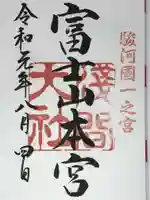 駿河國一之宮
富士山本宮
淺間
大社
令和元年八月四日